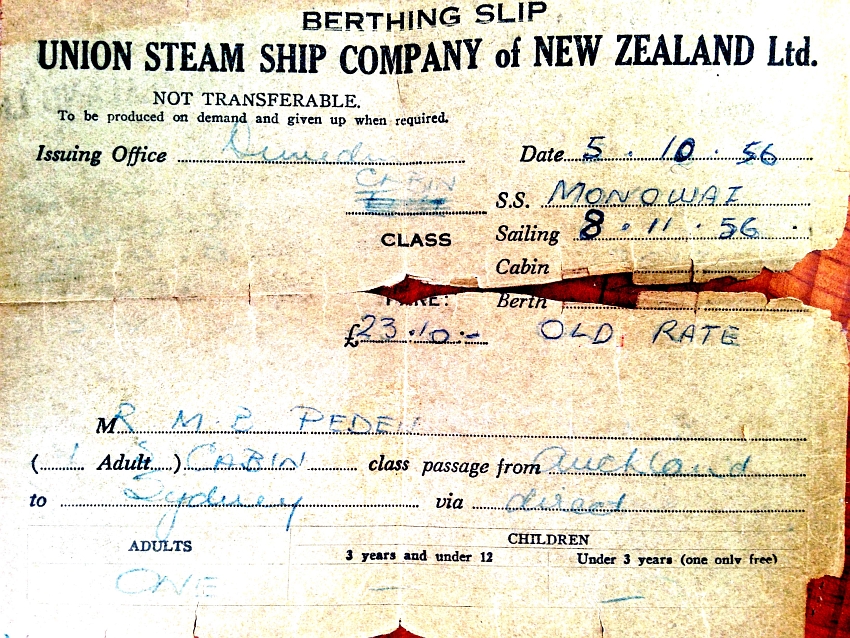 BERTHING SLIP
UNION STEAM SHIP COMPANY of NEW ZEALAND Ltd.
NOT TRANSFERABLE.
To be produced on demand and given up when required.
Issuing Office Dunedin Date 5 . 10 . 56
CABIN
S.S. MONOWAI
CLASS Sailing 8 . 11 . 56 .
Cabin
FARE: Berth
£ 23 . 10 . - OLD RATE
MR M. PEDEN
( 1 Adult ) CABIN class passage from Auckland
to Sydney via direct
ADULTS CHILDREN
3 years and under 12 Under 3 years (one only free)
ONE — —